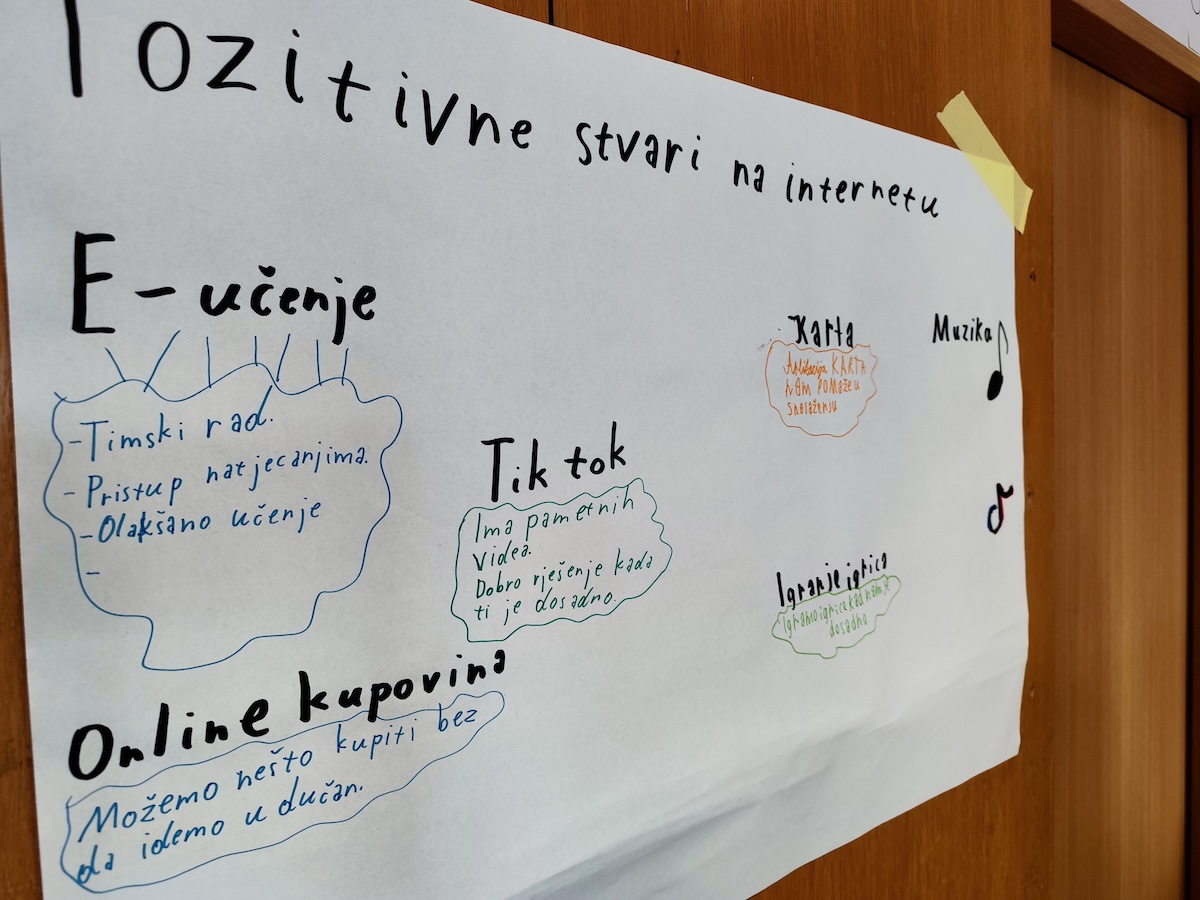 Pozitivne stvari na internetu
E-učenje
-Timski rad.
-Pristup natjecanjima.
-Olakšano učenje
-
Tik tok
Ima pametnih
videa.
Dobro rješenje kada
ti je dosadno.
Online kupovina
Možemo nešto kupiti bez
da idemo u dućan.
Karta
Aplikacija KARTA
nam pomaže u
snalaženju
Muzika
Igranje igrica
Igramo igrice kad nam je
dosadno